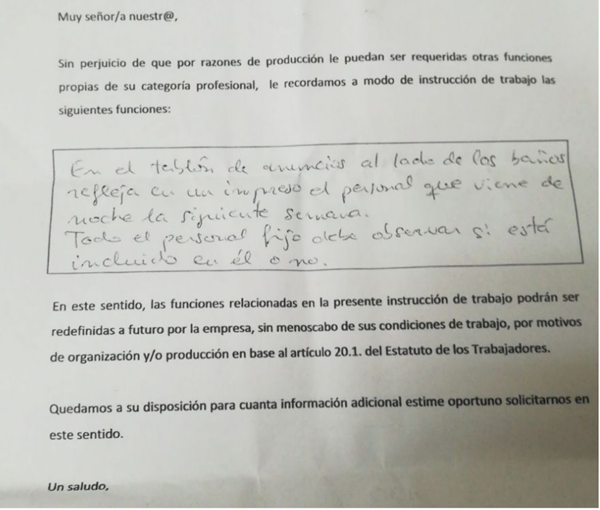 Muy señor/a nuestr@,
Sin perjuicio de que por razones de producción le puedan ser requeridas otras funciones
propias de su categoría profesional, le recordamos a modo de instrucción de trabajo las
siguientes funciones:
En el tablón de anuncios al lado de los baños
refleja en un impreso el personal que viene de
noche la siguiente semana.
Todo el personal fijo debe observar si está
incluido en él o no.
En este sentido, las funciones relacionadas en la presente instrucción de trabajo podrán ser
redefinidas a futuro por la empresa, sin menoscabo de sus condiciones de trabajo, por motivos
de organización y/o producción en base al artículo 20.1. del Estatuto de los Trabajadores.
Quedamos a su disposición para cuanta información adicional estime oportuno solicitarnos en
este sentido.
Un saludo,